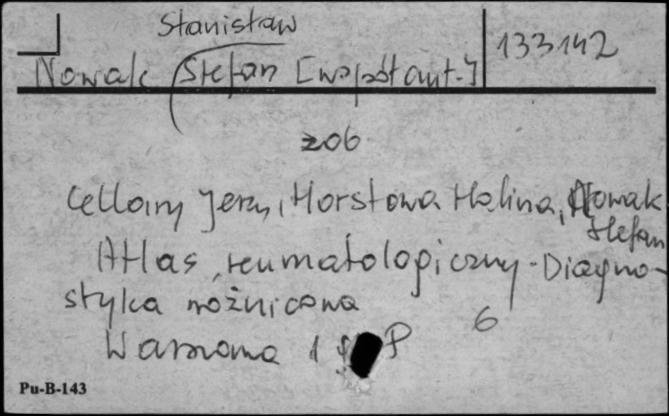 Stanisław
133142
Nowak (Stefan [współaut.]
zob
Cellary Jerzy, Horstowa Halina, Nowak
Stefan
Atlas reumatologiczny - Diagno-
styka różnicowa
Warszawa 1 P
6
Pu-B-143